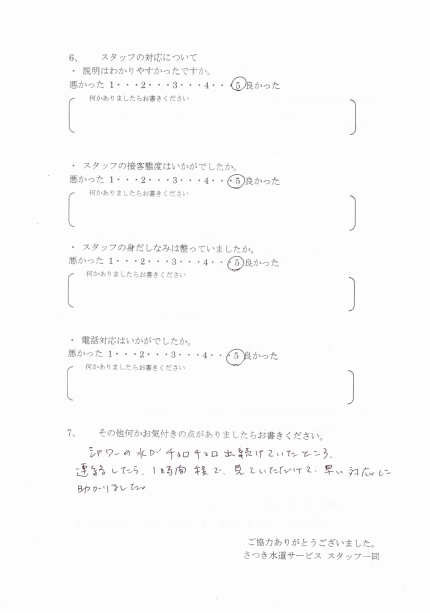 6、　スタッフの対応について
・ 説明はわかりやすかったですか。
悪かった 1・・・2・・・3・・・4・・・5良かった
何かありましたらお書きください
・ スタッフの接客態度はいかがでしたか。
悪かった 1・・・2・・・3・・・4・・・5良かった
何かありましたらお書きください
・ スタッフの身だしなみは整っていましたか。
悪かった 1・・・2・・・3・・・4・・・5良かった
何かありましたらお書きください
・ 電話対応はいかがでしたか。
悪かった 1・・・2・・・3・・・4・・・5良かった
何かありましたらお書きください
7、　その他何かお気付きの点がありましたらお書きください。
シャワーの水がチョロチョロ出続けていたところ、
連絡したら、1時間程で、見ていただけて、早い対応に
助かりました。
ご協力ありがとうございました。
さつき水道サービス スタッフ一同